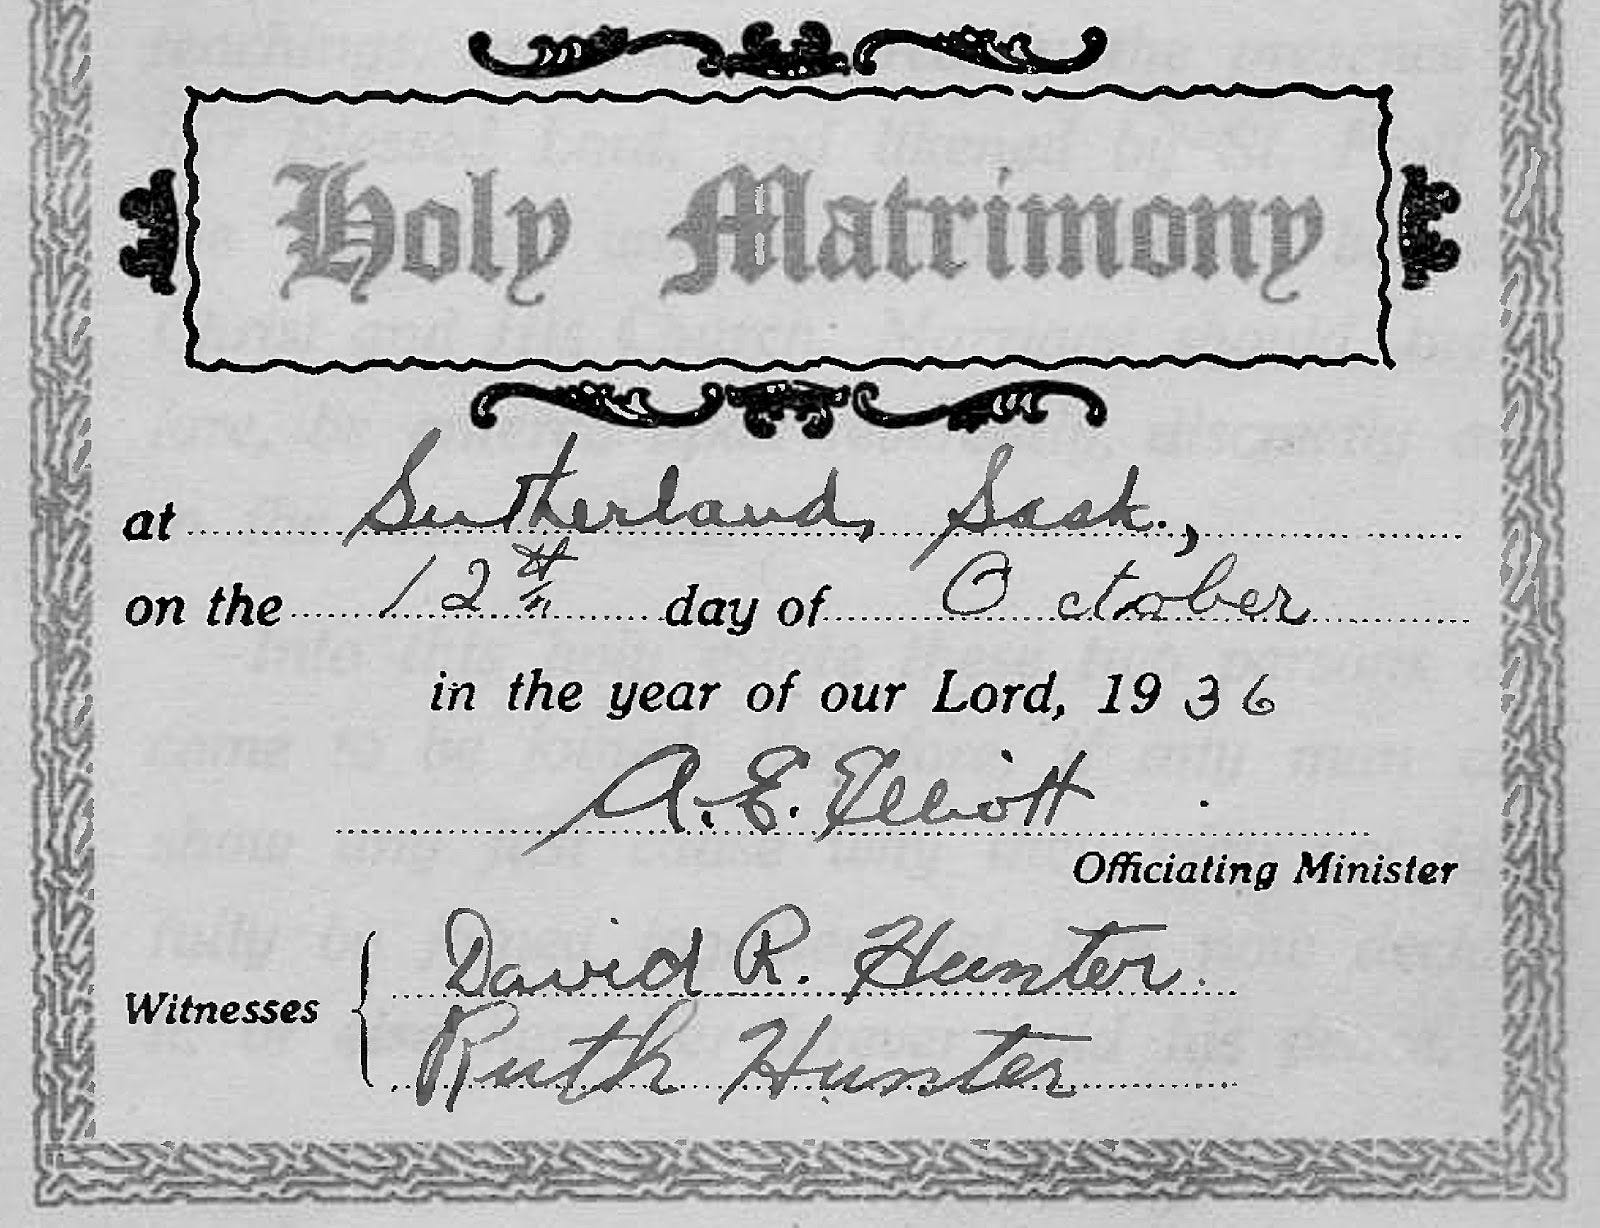 Holy Matrimony
at Sutherland, Sask.,
on the 12th day of October
in the year of our Lord, 1936
A. E. Elliott
Officiating Minister
Witnesses { David R. Hunter.
Ruth Hunter